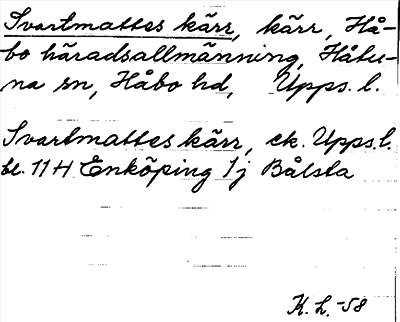 Svartmattes kärr, kärr, Hå-
bo häradsallmänning, Håtu-
na sn, Håbo hd, Upps. l.
Svartmattes kärr, ek. Upps.l.
bl. 11 H Enköping 1j Bålsta
K. L. -58